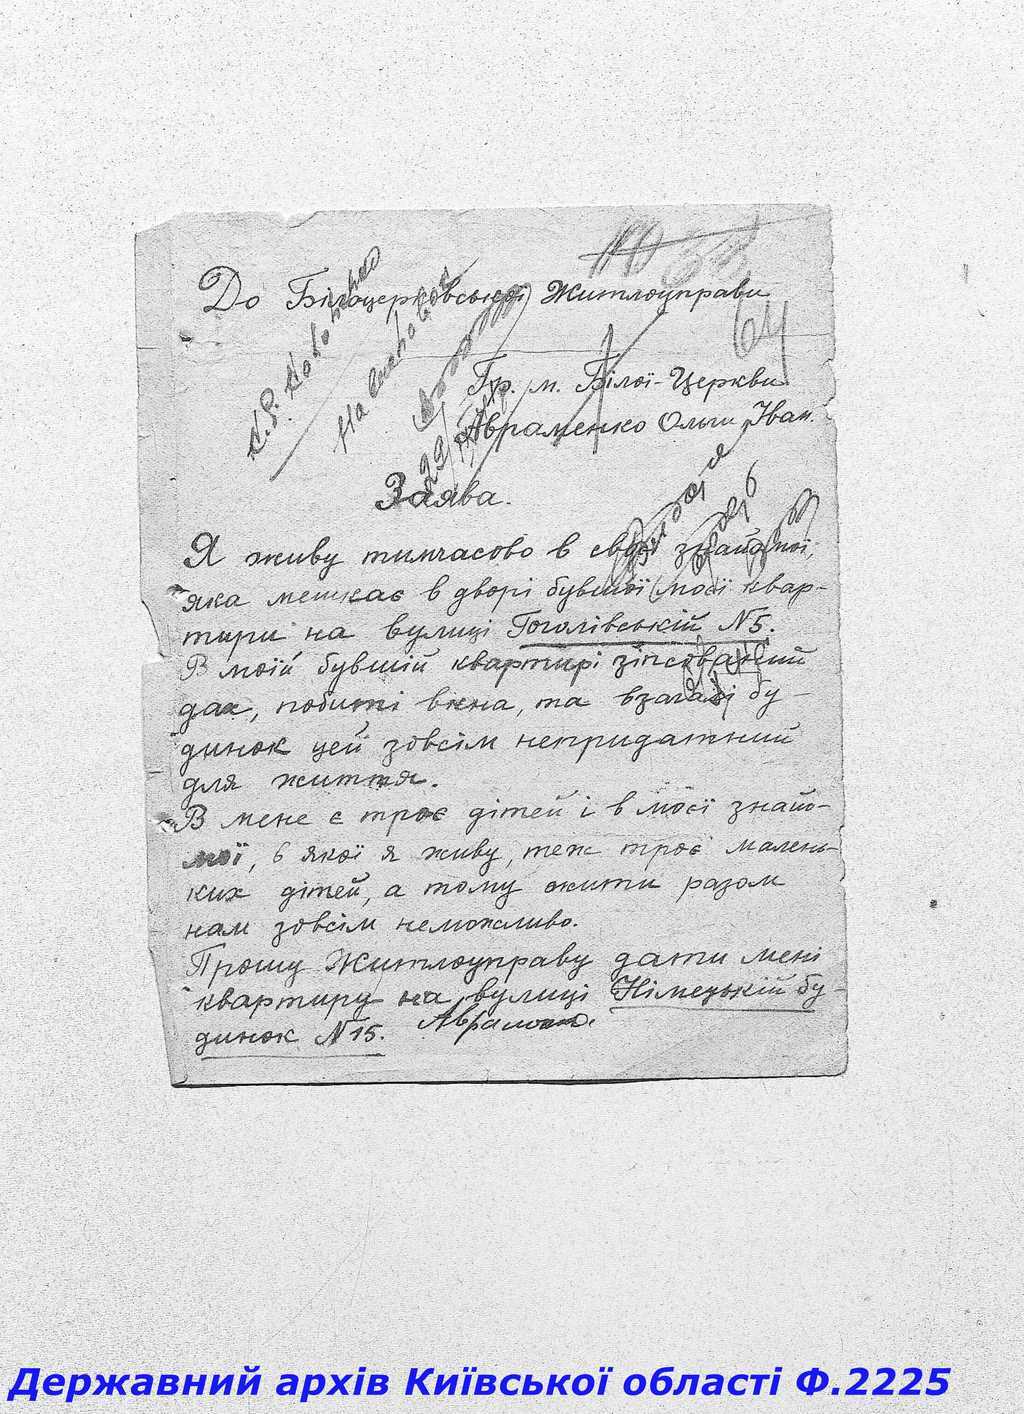 До Білоцерковської Житлоуправи
64
Гр. м. Білої-Церкви
Авраменко Ольги Іван.
Заява.
Я живу тимчасово в своєї знайомої,
яка мешкає в дворі бувшої моєї квар-
тири на вулиці Гоголівській N5.
В моїй бувшій квартирі зіпсований
дах, побиті вікна, та взагалі бу-
динок цей зовсім непридатний
для життя.
В мене є троє дітей і в моєї знайо-
мої, в якої я живу, теж троє малень-
ких дітей, а тому жити разом
нам зовсім неможливо.
Прошу Житлоуправу дати мені
квартиру на вулиці Німецькій бу-
динок N15.
Державний архів Київської області Ф.2225